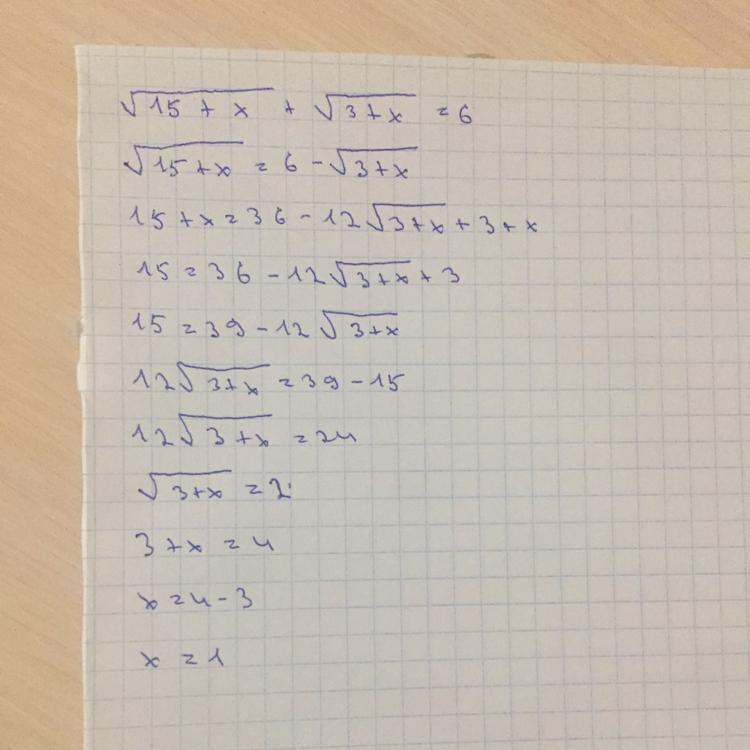 √15 + x + √3+x = 6
√15+x = 6 - √3+x
15 + x = 36 - 12√3+x + 3 + x
15 = 36 - 12√3+x + 3
15 = 39 - 12√3+x
12√3+x = 39 - 15
12√3+x = 24
√3+x = 2
3 + x = 4
x = 4 - 3
x = 1